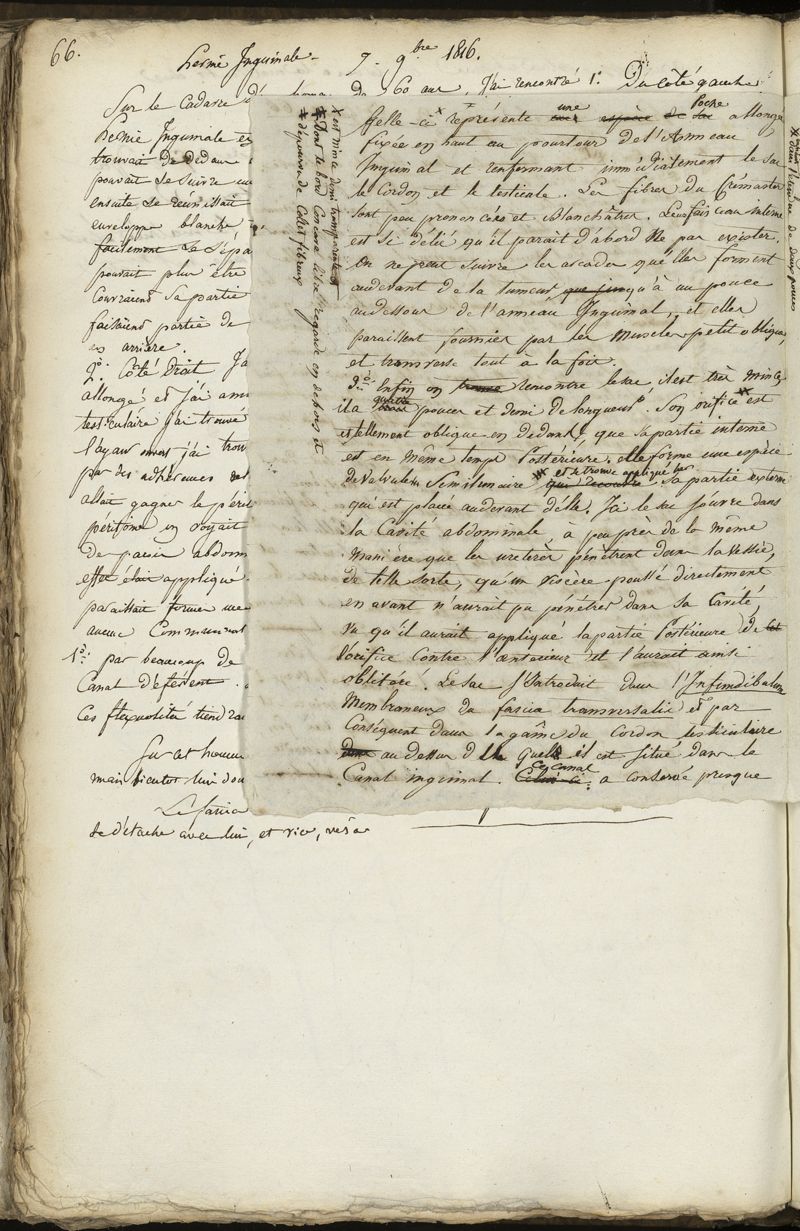 66.
hernie Inguinale - 7. 9.bre 1816.
Sur le Cadavre d' homme de 60 ans, J'ai rencontré 1.º Du côté gauche
hernie Inguinale
trouvait De Dedans
pouvait Se Suivre
ensuite Se réunissait
enveloppe blanche,
facilement Se Sépa
pouvait plus être
Couvraient Sa partie
faisaient partie de
en arrière.
2.º Côté Droit Ja
allongé et j'ai
testiculaire J'ai trouvé
l'ayant j'ai trou
par des adhérences
allait gagner le péri
péritoine on voyait
De paroi abdom
effet était appliqué
paraissait former une
aucune Communicat
1.º par beaucoup de
Canal Déférent.
Ces flexuosités tiendra
Sur cet homme
mais bientot lui dou
Le fascia
se détache avec lui, et vice, versâ
X est mince demi transparente et
X Dont le bord Concave libre regarde en dehors et
X dépourvue de Collet fibreux
X dans l'étendue de deux pouces
Celle-ci X représente une espèce de Sac poche allongée
fixée en haut au pourtour de l'Anneau
Inguinal et renfermant immédiatement le sac
le Cordon et le testicule. Les fibres du Crémaster
sont peu prononcées et blanchâtres. Le faisceau interne
est si délié qu'il parait d'abord Ne pas exister.
On ne peut suivre les arcades qu'elles forment
audevant de la tumeur que jusqu'à un pouce
audessous de l'anneau Inguinal, et elles
paraissent fournies par les Muscles petit oblique,
et transverse tout à la fois.
3.º Enfin on trouve rencontre le sac, il est très mince
il a quatre pouces et demi de longueur. Son orifice X est
tellement oblique en dedans, que sa partie interne
est en même temps Postérieure; elle forme une espèce
de Valvule Semilunaire X et se trouve appliqué qui recouvre sa partie externe
qui est placée audevant d'elle. J'ai le sac s'ouvre dans
la Cavité abdominale, à peu près de la même
manière que les uretères pénètrent dans la Vessie,
de telle sorte, qu'un viscère poussé directement
en avant n'aurait pu pénétrer dans sa Cavité,
vu qu'il aurait appliqué la partie Postérieure de cet
l'orifice contre l'antérieure et l'aurait ainsi
oblitéré. Le sac s'Introduit dans l'Infundibulum
Membraneux du fascia transversalis et par
Conséquent dans la gaîne du Cordon testiculaire
dans au dessus duquel il est situé dans le
Canal inguinal. Celui-ci Ce Canal a conservé presque